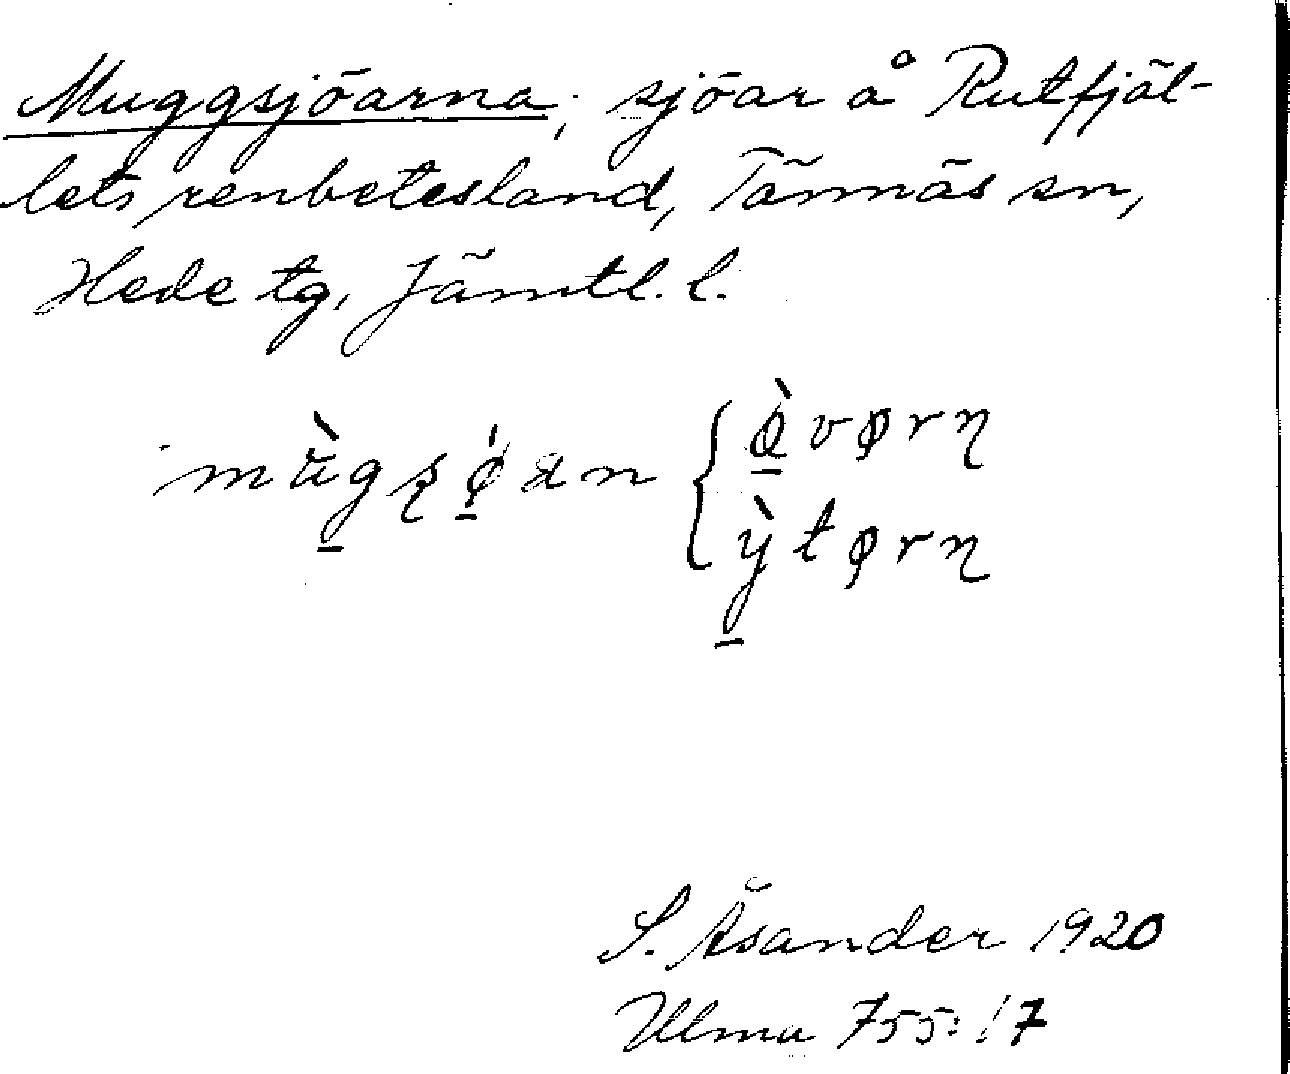 Muggsjöarna; sjöar å Rutfjäl-
lets renbetesland, Tännäs sn,
Hede tg, Jämtl. l.
S. Åsander 1920
Ulma 755:17